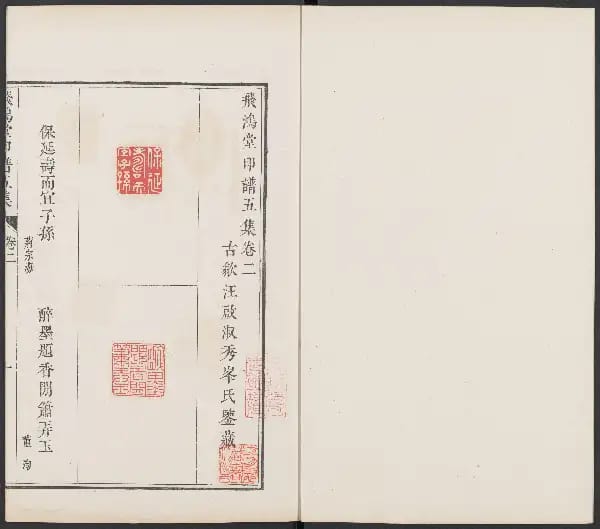 飛鴻堂印譜五集卷二
古歙汪啟淑秀峯氏鑒藏
保延壽而宜子孫
保延壽而宜子孫
醉墨題香閒簫弄玉
飛鴻堂印譜五集
卷二
一